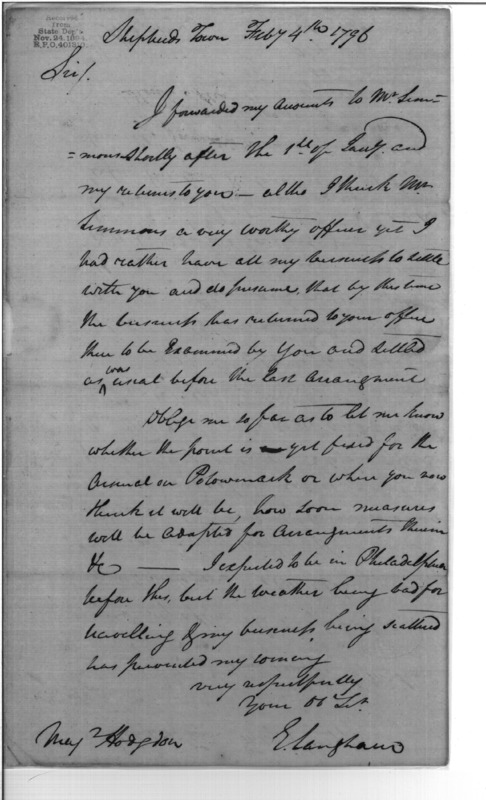 Received
from
State Dep't
Nov. 24. 190
R.P.O. 401
Shepherds Town Feby 4th 1796
Sir/.
I forwarded my accounts to Mr Sim-
=mons shortly after the 1st of Jany. and
my returns to you — altho I think Mr
Simmons a very worthy officer yet I
had rather have all my business to settle
with you and do presume, that by this time
the business has returned to your office
there to be Examined by you and settled
as was usual before the last arrangment
Oblige me so far as to let me know
whether the point is yet fixed for the
Arsenal on Potowmack or where you now
think it will be, how soon measures
will be adopted for arrangments therein
&c — I expected to be in Philadelphia
before this, but the weather being bad for
travelling & my business, being scattred
has prevented my coming
very respectfully
Your Ob Set.
Majr Hodgdon E. Langham